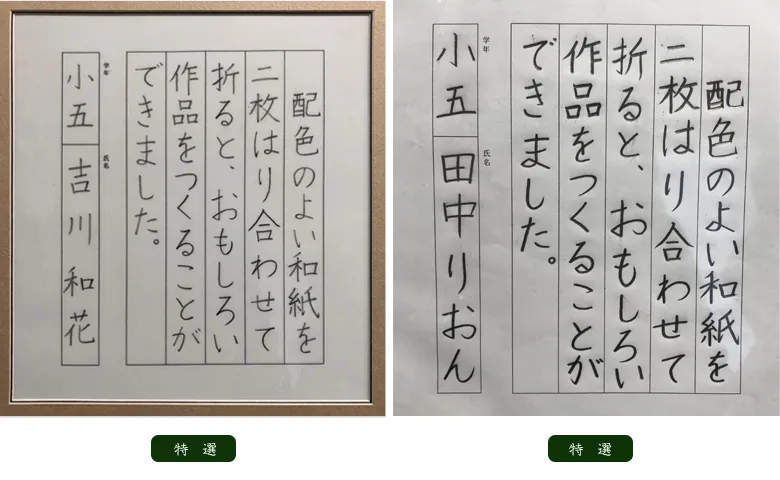 配色のよい和紙を
二枚はり合わせて
折ると、おもしろい
作品をつくることが
できました。
学年
小五
氏名
吉川和花
特選
配色のよい和紙を
二枚はり合わせて
折ると、おもしろい
作品をつくることが
できました。
学年
小五
氏名
田中りおん
特選